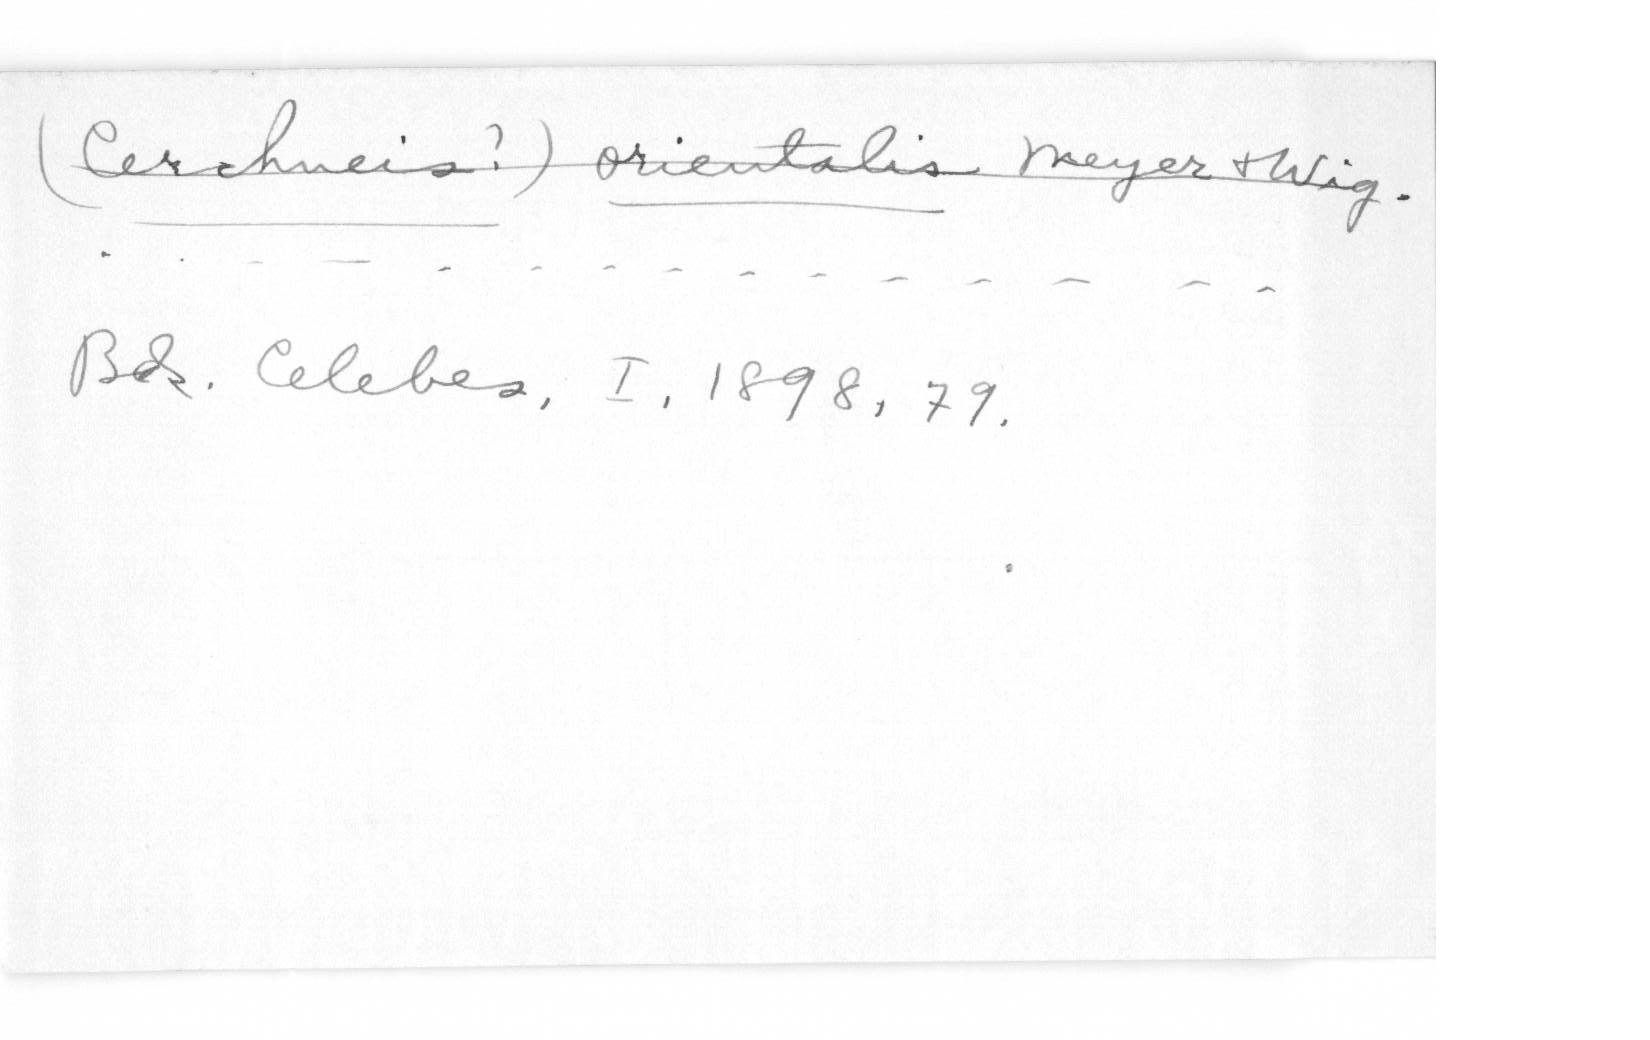 (Cerchneis?) orientalis Meyer & Wig.
Bds. Celebes, I, 1898, 79.